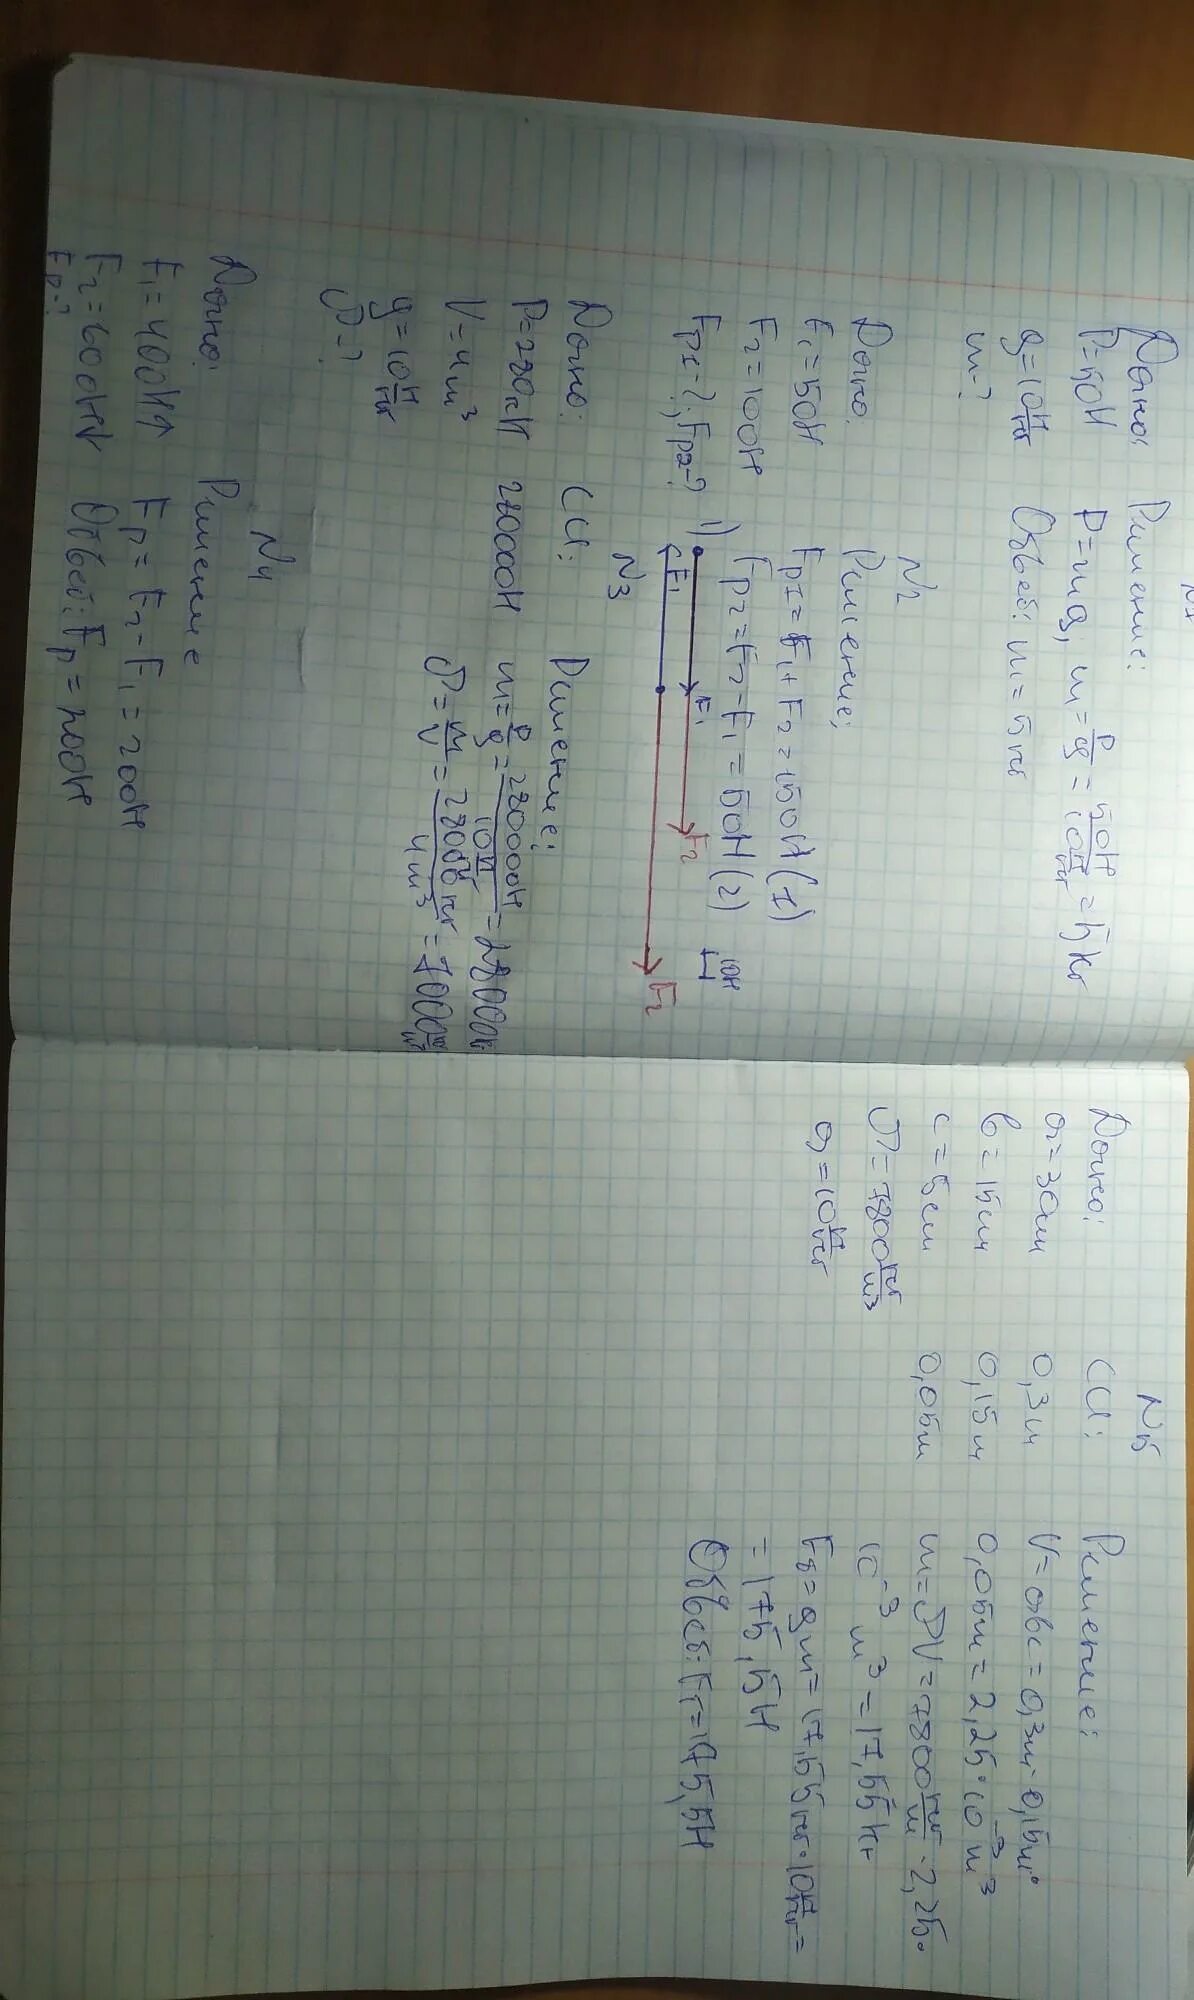 N1
Дано: Решение:
P=50H P=mg, m=P/g=50H/10H/кг=5кг
g=10H/кг Ответ: m=5кг
m-?
N2
Дано: Решение:
F1=50H FP1=F1+F2=150H(1)
F2=100H FP2=F2-F1=50H(2)
FP1-?, FP2-? 1) F1 F2 10H
F1 F2
N3
Дано: СИ: Решение:
P=280кН 280000H m=P/g=280000H/10H/кг=28000кг
V=4м³ ρ=m/V=28000кг/4м³=7000кг/м³
g=10H/кг
ρ-?
N4
Дано: Решение
F1=400H↑ FP=F2-F1=200H
F2=600H↓ Ответ: FP=200H
FP-?
N5
Дано: СИ: Решение:
a=30см 0,3м V=abc=0,3м·0,15м·
b=15см 0,15м 0,05м=2,25·10⁻³м³
c=5см 0,05м m=ρV=7800кг/м·2,25·
ρ=7800кг/м³ 10⁻³м³=17,55кг
g=10H/кг Fт=gm=17,55кг·10H/кг=
=175,5H
Ответ: Fт=175,5H